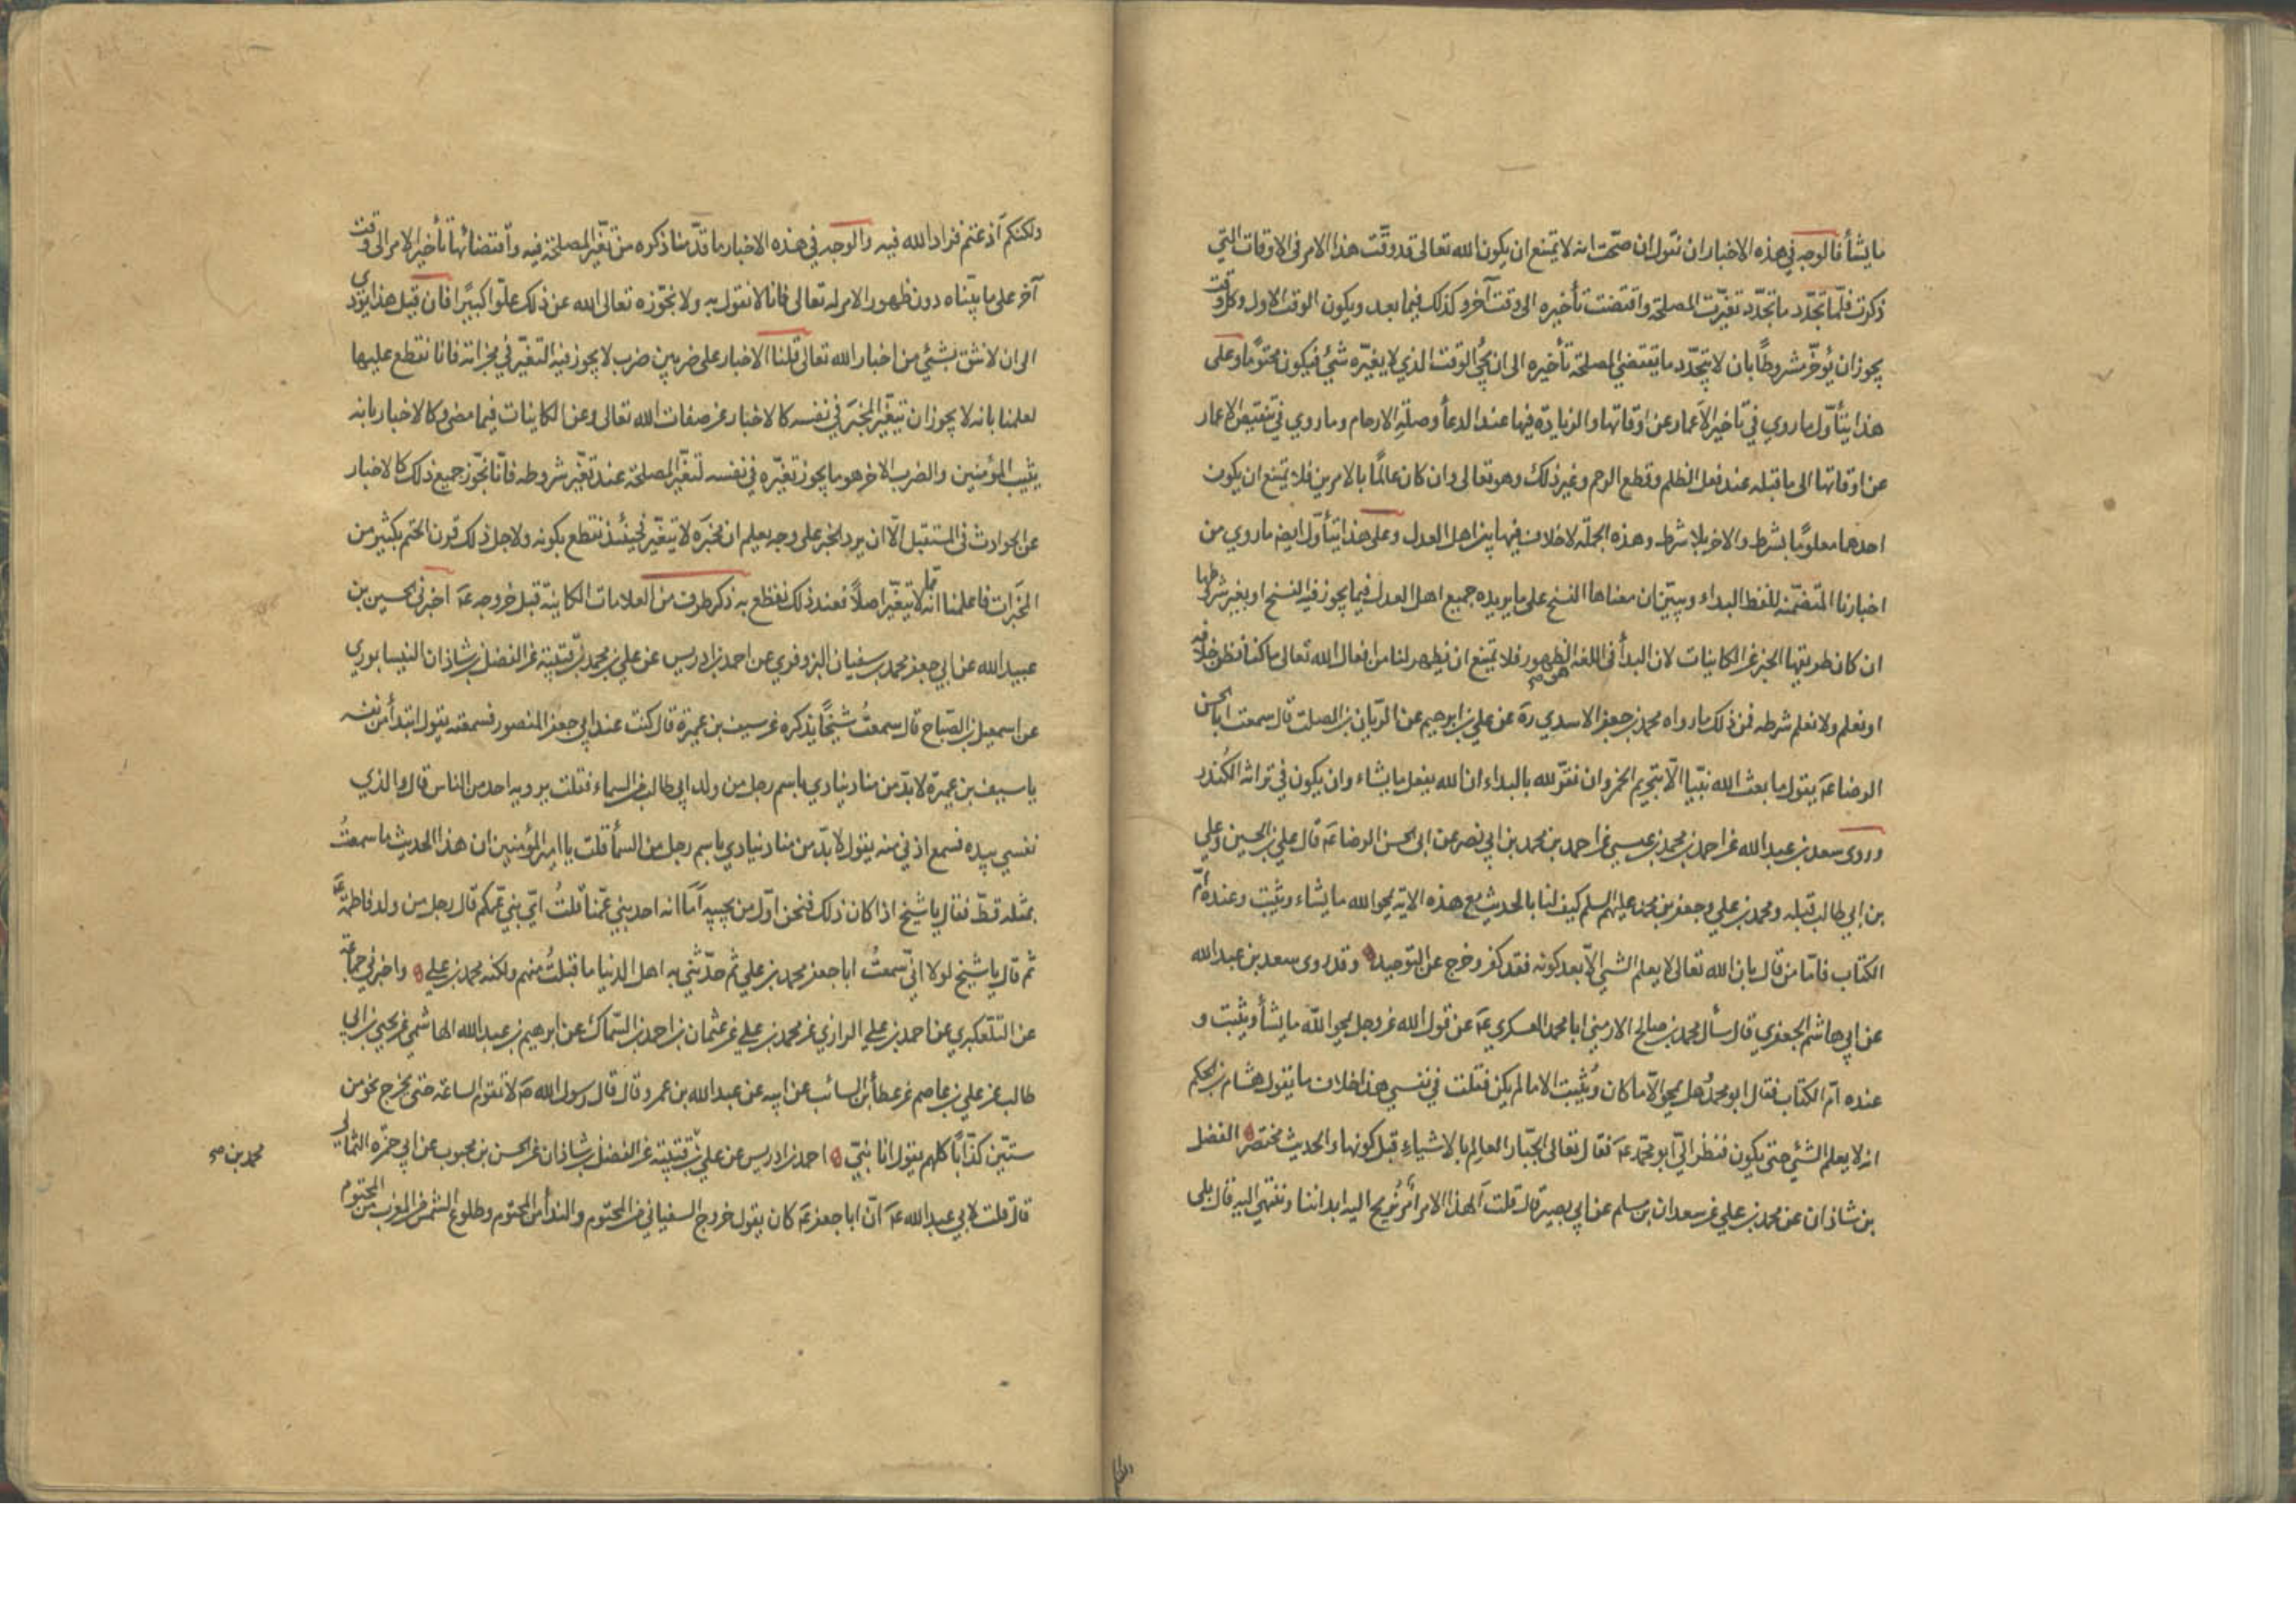 ما يشأ فالوجه في هذه الاخبار ان نقول ان صحت انه لا يمتنع ان يكون الله تعالى قد وقّت هذا الامر في الاوقات التي
ذكرت فلمّا تجدّد ما تجدّد تغيّرت المصلحة واقتضت تأخيره الى وقت آخر وكذلك فيما بعد ويكون الوقت الاول وكل وقت
يجوز ان يُؤخّر مشروطًا بان لا يتجدّد ما تقتضي المصلحة تأخيره الى ان يجئ الوقت الذي لا يغيّره شئ فيكون محتومًا وعلى
هذا يتأوّل ما روي في تاخير الاعمار عن اوقاتها والزيادة فيها عند الدعأ وصلة الارحام وما روي في تنقيص الاعمار
عن اوقاتها الى ما قبله عند فعل الظلم وقطع الرحم وغير ذلك وهو تعالى وان كان عالمًا بالامرين فلا يمتنع ان يكون
احدهما معلومًا بشرط والاخر بلا شرط وهذه الجملة لا خلاف فيها بين اهل العدل وعلى هذا يتأوّل ايضا ما روي من
اخبارنا المتضمّنه للفظ البداء ويبيّن ان معناها النسخ على ما يريده جميع اهل العدل فيما يجوز فيه النسخ او تغير شروطها
ان كان طريقها الخبر عن الكاينات لان البدأ في اللغة هو الظهور فلا يمتنع ان يظهر لنا من افعال الله تعالى ما كنا نظن خلافه
او نعلم ولا نعلم شرطه فمن ذلك ما رواه محمد بن جعفر الاسدي ره عن علي بن ابرهيم عن الريّان بن الصلت قال سمعت ابا الحسن
الرضا عه يقول ما بعث الله نبيّا الّا بتحريم الخمر وان نقرّ لله بالبداء ان الله يفعل ما يشاء وان يكون في تراثه الكُندر
وروى سعد بن عبد الله عن احمد بن محمد بن عيسى عن احمد بن محمد بن ابي نصر عن ابي الحسن الرضا عه قال علي بن الحسين وعلي
بن ابي طالب قبله ومحمد بن علي وجعفر بن محمد عليهم السلم كيف لنا بالحديث مع هذه الاية يمحو الله ما يشاء ويثبت وعنده امّ
الكتاب فامّا من قال بان الله تعالى لا يعلم الشي الّا بعد كونه فقد كفر وخرج عن التوحيد وقد روى سعد بن عبد الله
عن ابي هاشم الجعفري قال سأل محمد بن صالح الارمني ابا محمد العسكري عه عن قول الله عز وجل يمحو الله ما يشأ ويثبت و
عنده امّ الكتاب فقال ابو محمد هل يمحو الّا ما كان ويُثبت الا ما لم يكن فقلت في نفسي هذا خلاف ما يقول هشام بن الحكم
انه لا يعلم الشئ حتى يكون فنظر اليّ ابو محمّد عه فقال تعالى الجبّار العالم بالاشياء قبل كونها والحديث مختصر الفضل
بن شاذان عن محمد بن علي عن سعدان بن مسلم عن ابي بصير قال قلت ألهذا الامر امرٌ نريح اليه ابداننا وننتهي اليه قال بلى
ولكنكم اذعتم فزاد الله فيه والوجه في هذه الاخبار ما قدّمنا ذكره من تغيّر المصلحة فيه واقتضائها تأخير الامر الى وقت
آخر على ما بيّناه دون ظهور الامر له تعالى فانا لا نقول به ولا نجوّزه تعالى الله عن ذلك علوّا كبيرًا فان قيل هذا يؤدي
الى ان لا نثق بشئ من اخبار الله تعالى قلنا الاخبار على ضربين ضرب لا يجوز فيه التغيّر في مخبراته فانا نقطع عليها
لعلمنا بانه لا يجوز ان يتغيّر المخبَر في نفسه كالاخبار عن صفات الله تعالى وعن الكاينات فيما مضى وكالاخبار بانه
يثيب المؤمنين والضرب الاخر هو ما يجوز تغيّره في نفسه لتغيّر المصلحة عند تغيّر شروطه فانّا نجوّز جميع ذلك كالاخبار
عن الحوادث في المستقبل الّا ان يرد الخبر على وجه يعلم ان مخبَره لا يتغيّر فحينئذ نقطع بكونه ولاجل ذلك قرن الحتم بكثير من
المخبَرات فاعلمنا انه لا يتغيّر اصلًا فعند ذلك نقطع به ذكر طرف من العلامات الكاينة قبل خروجه عه اخبرني الحسين بن
عبيد الله عن ابي جعفر محمد بن سفيان البزوفري عن احمد بن ادريس عن علي بن محمد بن قتيبة عن الفضل بن شاذان النيسابوري
عن اسمعيل بن الصبّاح قال سمعتُ شيخًا يذكره عن سيف بن عميرة قال كنت عند ابي جعفر المنصور فسمعته يقول ابتدأ من نفسه
يا سيف بن عميرة لا بدّ من مناد ينادي باسم رجل من ولد ابي طالب من السماء فقلت يرويه احد من الناس قال والذي
نفسي بيده فسمع اذني منه يقول لا بدّ من مناد ينادي باسم رجل من السمأ قلت يا امير المؤمنين ان هذا الحديث ما سمعتُ
بمثله قطّ فقال يا شيخ اذا كان ذلك فنحن اوّل من يجيبه اَمَا انه احد بني عمّنا قلتُ ايّ بني عمّكم قال رجل من ولد فاطمة عه
ثم قال يا شيخ لولا انّي سمعتُ ابا جعفر محمد بن علي ثم حدّثني به اهل الدنيا ما قبلتُ منهم ولكنه محمد بن علي واخبرني جماعة
عن التلعكبري عن احمد بن علي الرازي عن محمد بن علي عن عثمان بن احمد بن السمّاك عن ابرهيم بن عبد الله الهاشمي عن يحيى بن ابي
طالب عن علي بن عاصم عن عطأ بن السائب عن ابيه عن عبد الله بن عمر وقال قال رسول الله صه لا تقوم الساعة حتى يخرج نحو من
ستّين كذّابًا كلهم يقول انا نبيّ احمد بن ادريس عن علي بن قتيبة عن الفضل بن شاذان عن الحسن بن محبوب عن ابي حمزة الثمالي
محمد بن صح
قال قلت لابي عبد الله عه انّ ابا جعفر عه كان يقول خروج السفياني من المحتوم والندأ من المحتوم وطلوع الشمس من المغرب من المحتوم